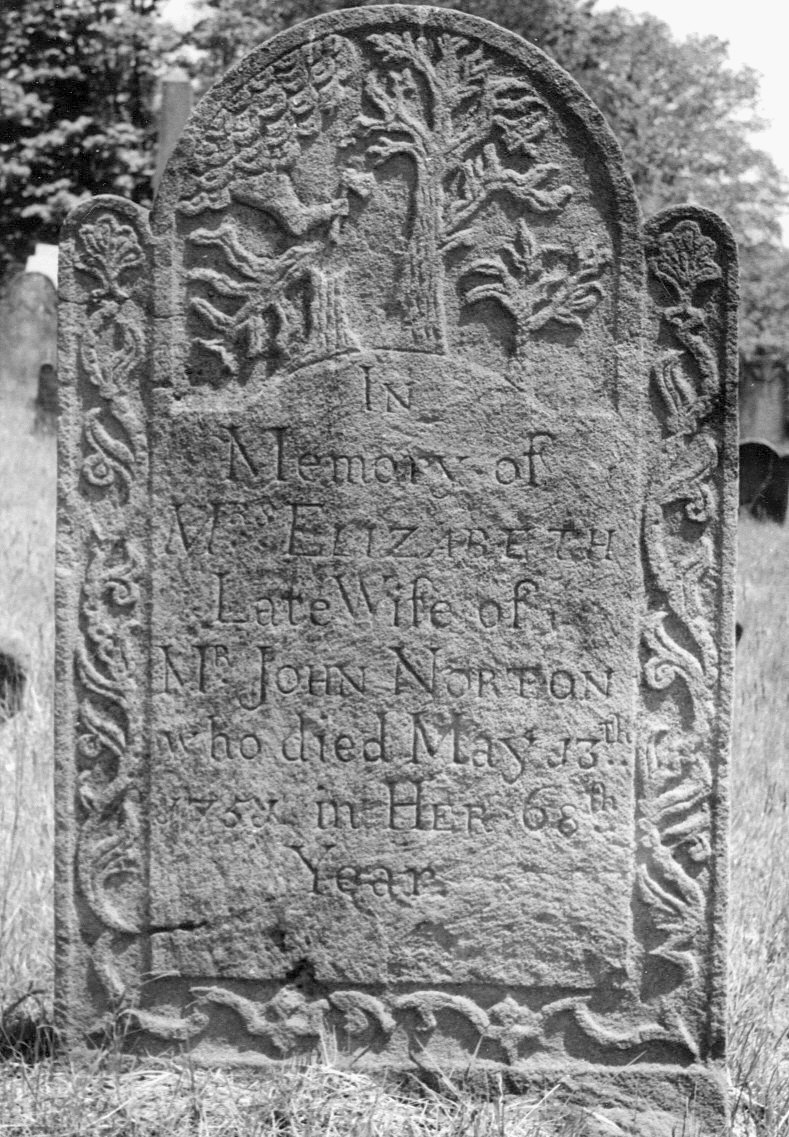 IN
Memory of
Mrs ELIZABETH
Late Wife of
Mr JOHN NORTON
who died May 13th
1751 in HER 68th
Year.